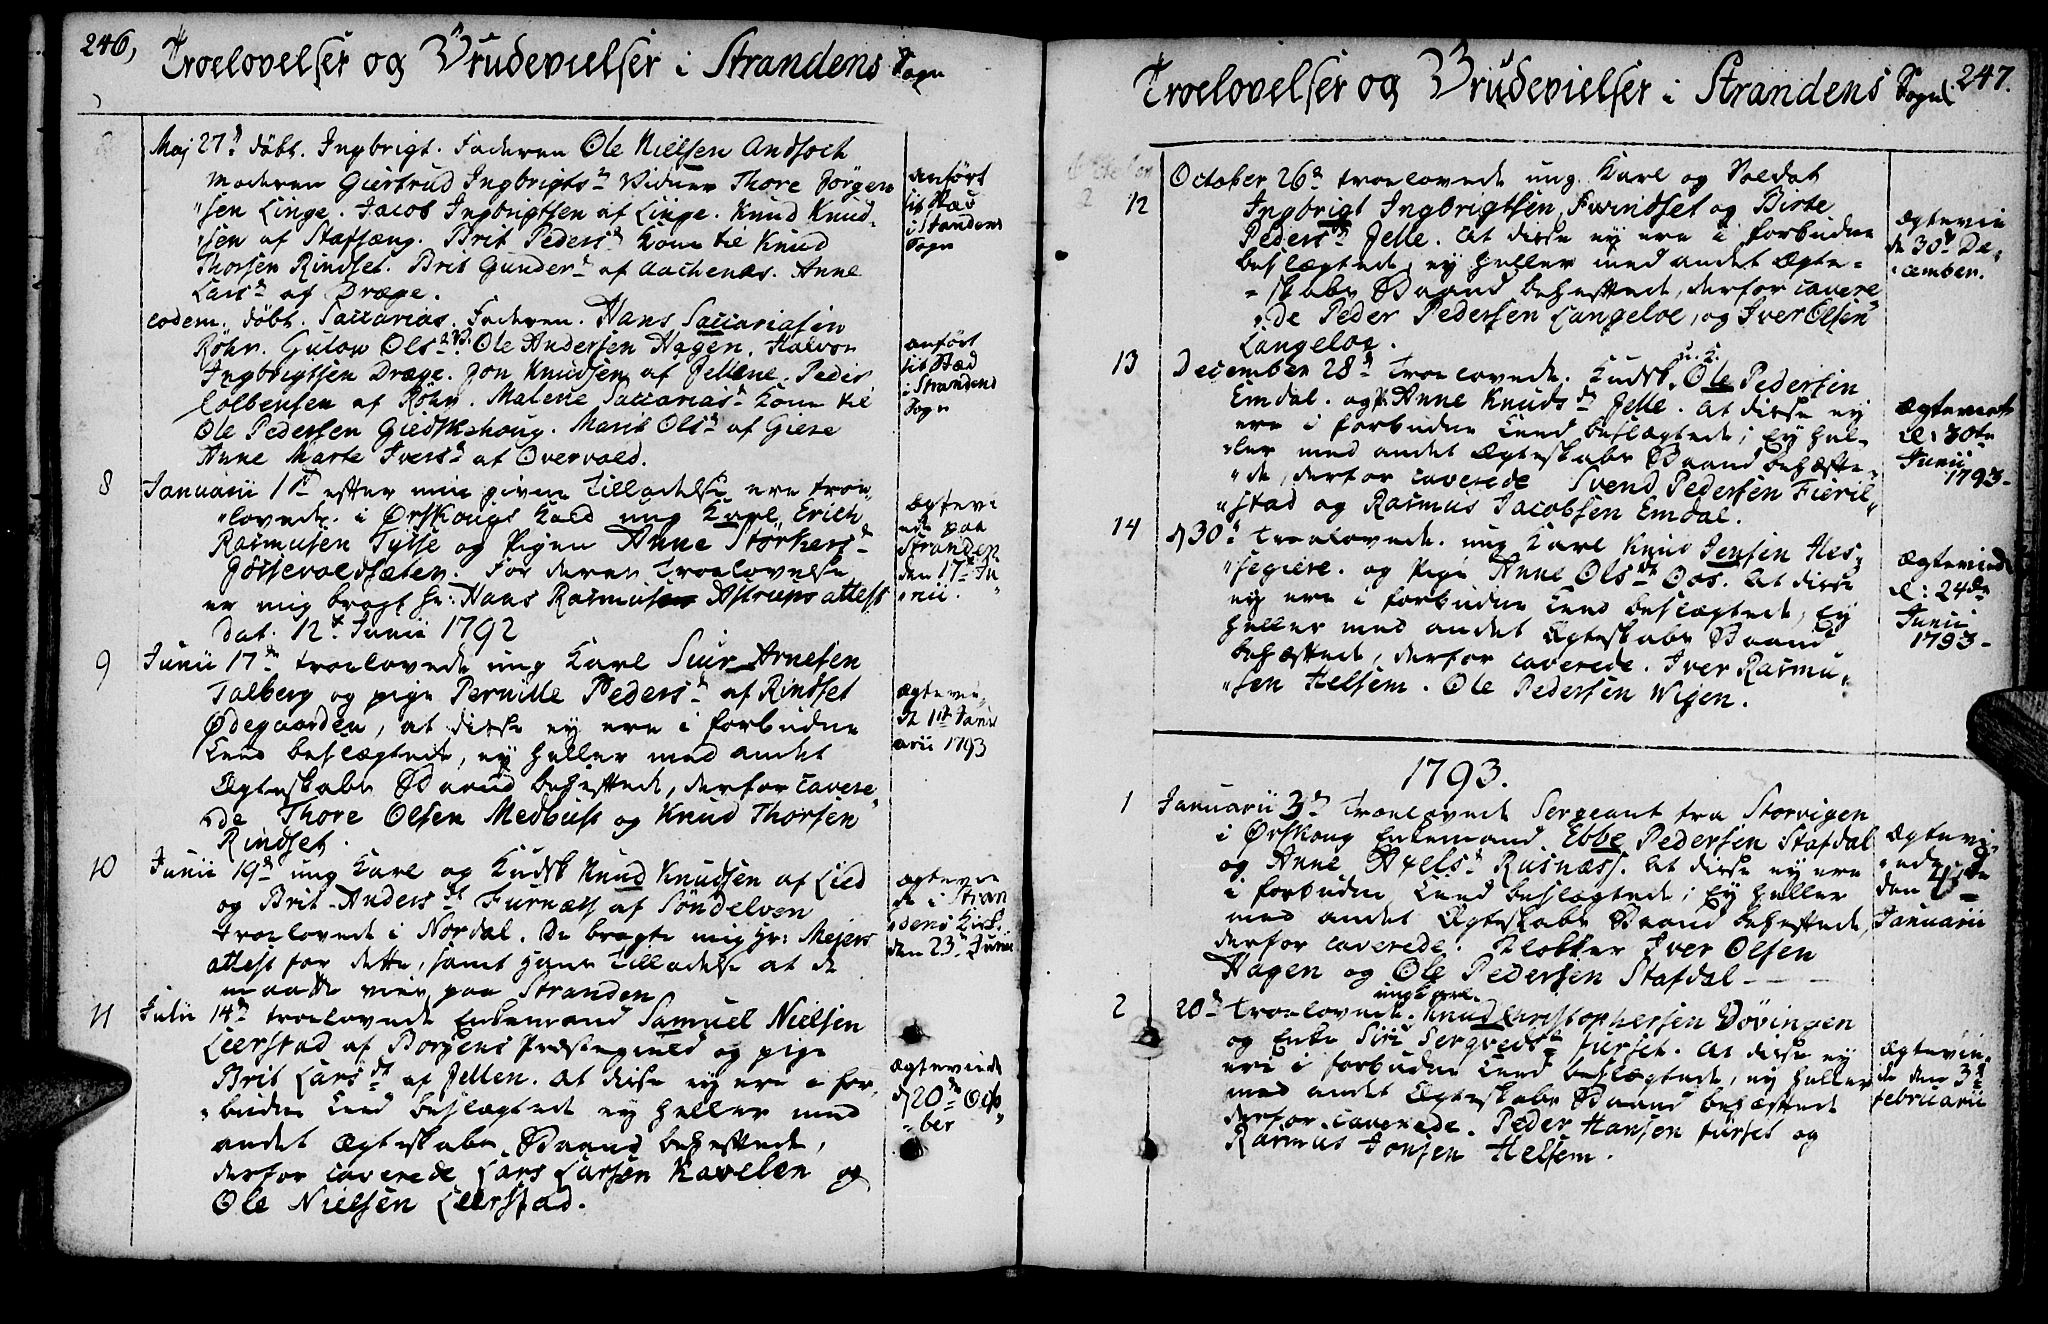 246,
Troelovelser og Brudevielser i Strandens Sogn
Maj 27de döbt. Ingbrigt. Faderen Ole Nielsen Andsoch
Moderen Giertrud Ingbrigtsdr Vidner Thore Jörgen
"sen Linge. Jacob Ingbrigtsen af Linge. Knud Knud-
"sen af Stafsæng. Brit Pedersdr Kone til Knud
Thorsen Rindset. Brit Gundersdr af Aachenæs. Anne
Larsdr af Dræge.
anført
sit Stæd
i Strandens
Sogn
eodem. döbt. Saccarias. Faderen. Hans Saccariasen
Röhr. Gulow Olsdr Ole Andersen Hagen. Halvor
Ingbrigtsen Dræge. Jon Knudsen af Jellene. Peder
Colbensen af Röhr. Malene Saccariasdr Kone til
Ole Pedersen Giedskehoug. Marit Olsdr af Giere
Anne Marte Iversdr af Overvold.
anført
sit Stæd
i Strandens
Sogn
8
Januarii 1ste efter min givne Tilladelse ere troe-
"lovede i Ørskougs Kald ung Karl Erich
Rasmusen Tysse og Pigen Anne Störkersdr
Jösevoldsæter. For deres Troelovelse
er mig bragt Hr: Hans Rasmusen Astrups attest
Dat. 12te Junii 1792
Ægtevi
ede paa
Stranden
den 17de Ju
"nii.
9
Junii 17de troelovede ung Karl Siur Arnesen
Talberg og pige Pernille Pedersdr af Rindset
Ødegaarden, at disse ej ere i forbudne
Leed beslægtede, ej heller med andet
Ægteskabs Baand behæftede, derfor cavere-
"de Thore Olsen Medhus og Knud Thorsen
Rindset.
Ægtevi-
de 1ste Janu
arii 1793
10
Junii 19de ung Karl og Kudsk Knud Knudsen af Lied
og Brit Andersdt Furnæss af Söndelven
troelovede i Nordal. De bragte mig Hr: Mejers
attest for dette, samt hans Tilladelse at de
maatte vies paa Stranden
Ægtevie
de i Stran
"dens Kirk.
den 23de Junii
11
Julii 14de troelovede Enkemand Samuel Nielsen
Leerstad af Borgens Præstegield og pige
Brit Larsdt af Jellen. At disse ej ere i for-
"budne Leed beslægtede ej heller med
andet Ægteskabs Baand behæftede,
derfor caverede Lars Larsen Kavelen og
Ole Nielsen Leerstad.
Ægteviede
d 20de Octo
"ber
Troelovelser og Brudevielser i Strandens Sogn
247.
12
October 26de troelovede ung Karl og Soldat
Ingbrigt Ingbrigtsen Svindset og Birte
Pedersdt Jelle. At disse ej ere i forbudne
beslægtede, ej heller med andet Ægte-
"skabs Baand behæftede, derfor cavere
"de Peder Pedersen Langeloe, og Iver Olsen
Langeloe.
Ægtevie
de 30de De-
"cember.
13
December 28de Troelovede. Kudsk Ole Pedersen
Emdal. og P. Anne Knudsdr Jelle. At disse ej
ere i forbudne Leed beslægtede; Ej hel-
"ler med andet Ægteskabs Baand behæfte-
"de, derfor caverede Svend Pedersen Fieril-
"stad og Rasmus Jacobsen Emdal.
Ægteviet
d: 30te
Junii
1793-
14
d 30de Troelovede ung Karl Knud Jensen Hes-
"segiere. og Pige Anne Olsdt Oos. At disse
ej ere i forbudne Leed beslægtede, Ej
heller med andet Ægteskabs Baand
behæftede, derfor caverede. Iver Rasmu-
"sen Helsem. Ole Pedersen Wigen.
Ægteviede
d: 24de
Junii
1793-
1793.
1
Januarii 3de Troelovede Sergeant fra Storvigen
i Ørskoug Enkemand Ebbe Pedersen Stafdal
og Anne Axelsdr Rusnæss. At disse ej ere
i forbudne Leed beslægtede; Ej heller
med andet Ægteskabs Baand behæftede,
derfor caverede. Klokker Iver Olsen
Hagen og Ole Pedersen Stafdal
Ægtevi-
"ede
den 4de
Januarii
2
20de Troelovede. ung karl Knud Christophersen Dövingen
og Enke Siri Sergvedsdr Furset. At disse ej
ere i forbudne Leed beslægtede, ej heller
med andet Ægteskabs Baand behæftede
derfor caverede. Peder Hansen Furset og
Rasmus Jonsen Helsem.
Ægtevie-
de den 3de
februarii